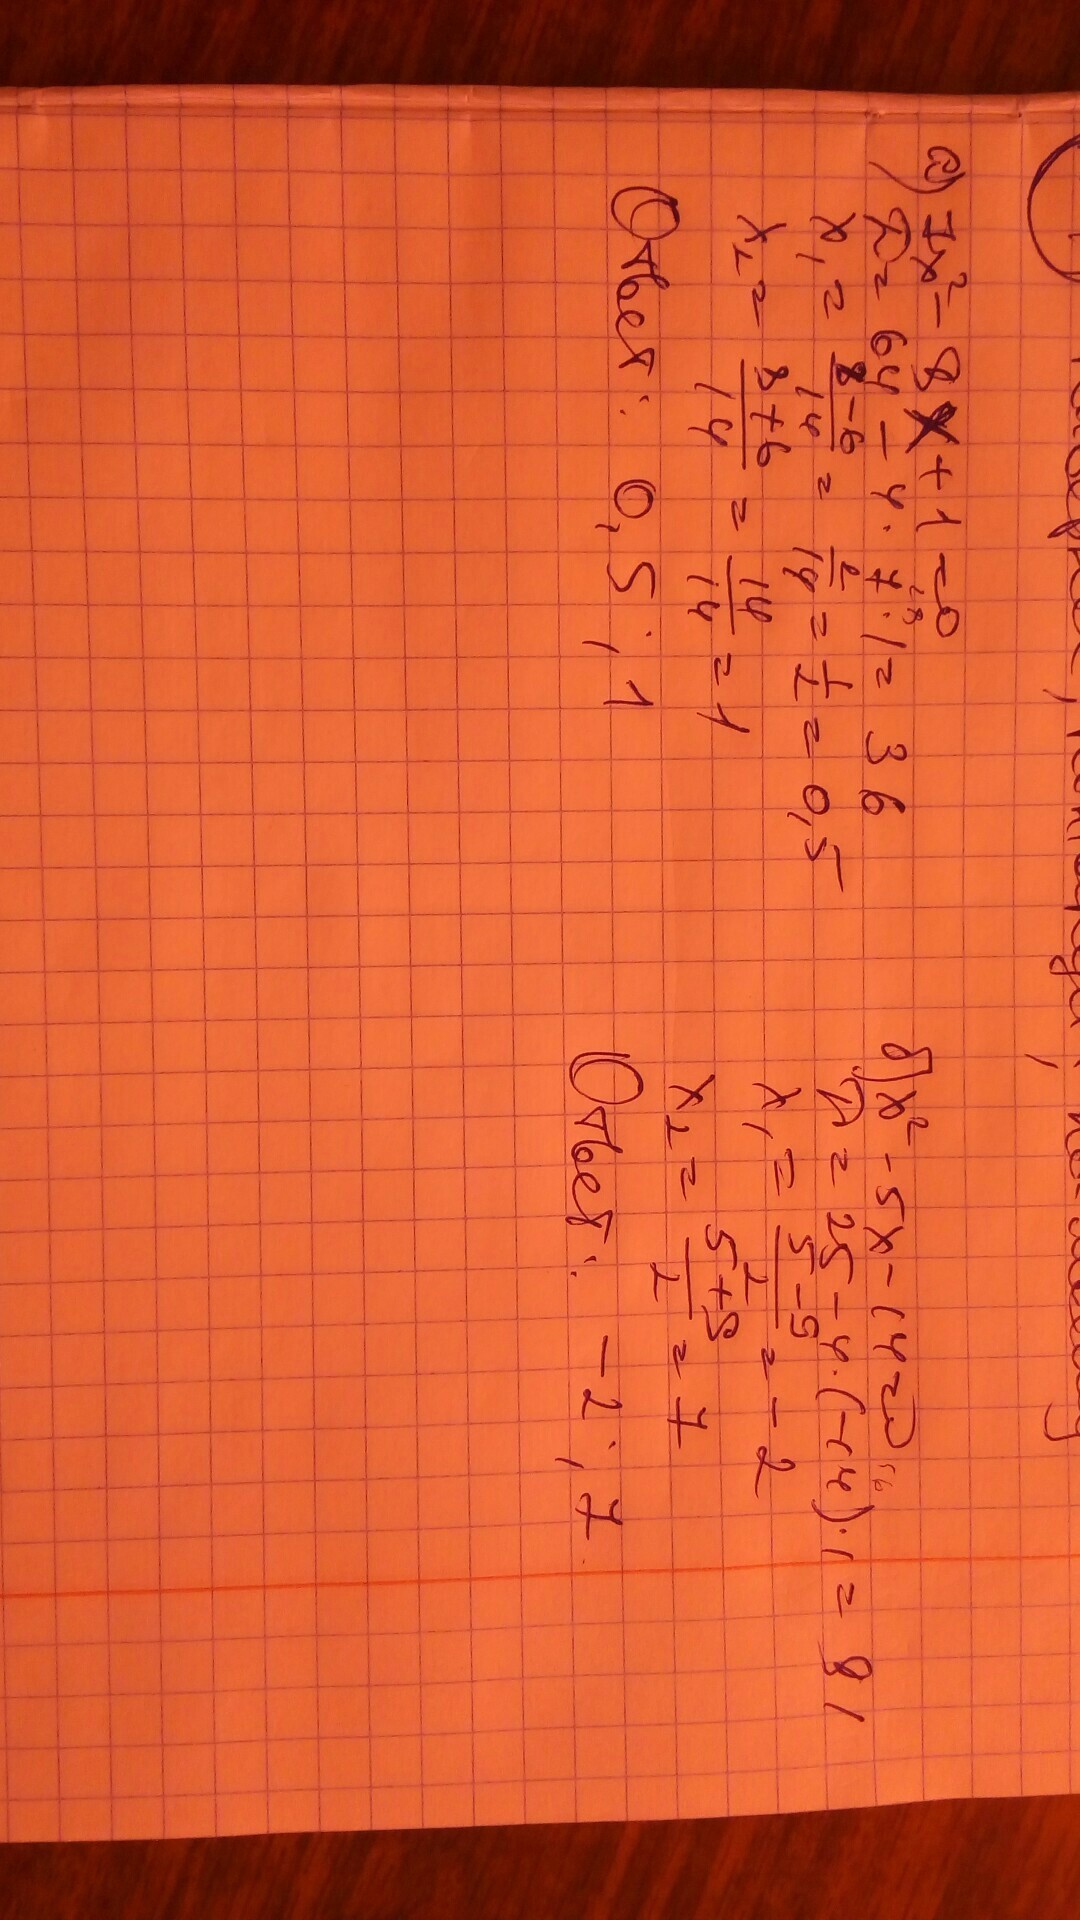 а) 7x² - 8x + 1 = 0
D = 64 - 4 · 7 · 1 = 36
x₁ = (8-6)/14 = 2/14 = 1/2 = 0,5
x₂ = (8+6)/14 = 14/14 = 1
Ответ: 0,5; 1
б) x² - 5x - 14 = 0
D = 25 - 4 · (-14) · 1 = 81
x₁ = (5-9)/2 = -2
x₂ = (5+9)/2 = 7
Ответ: -2; 7